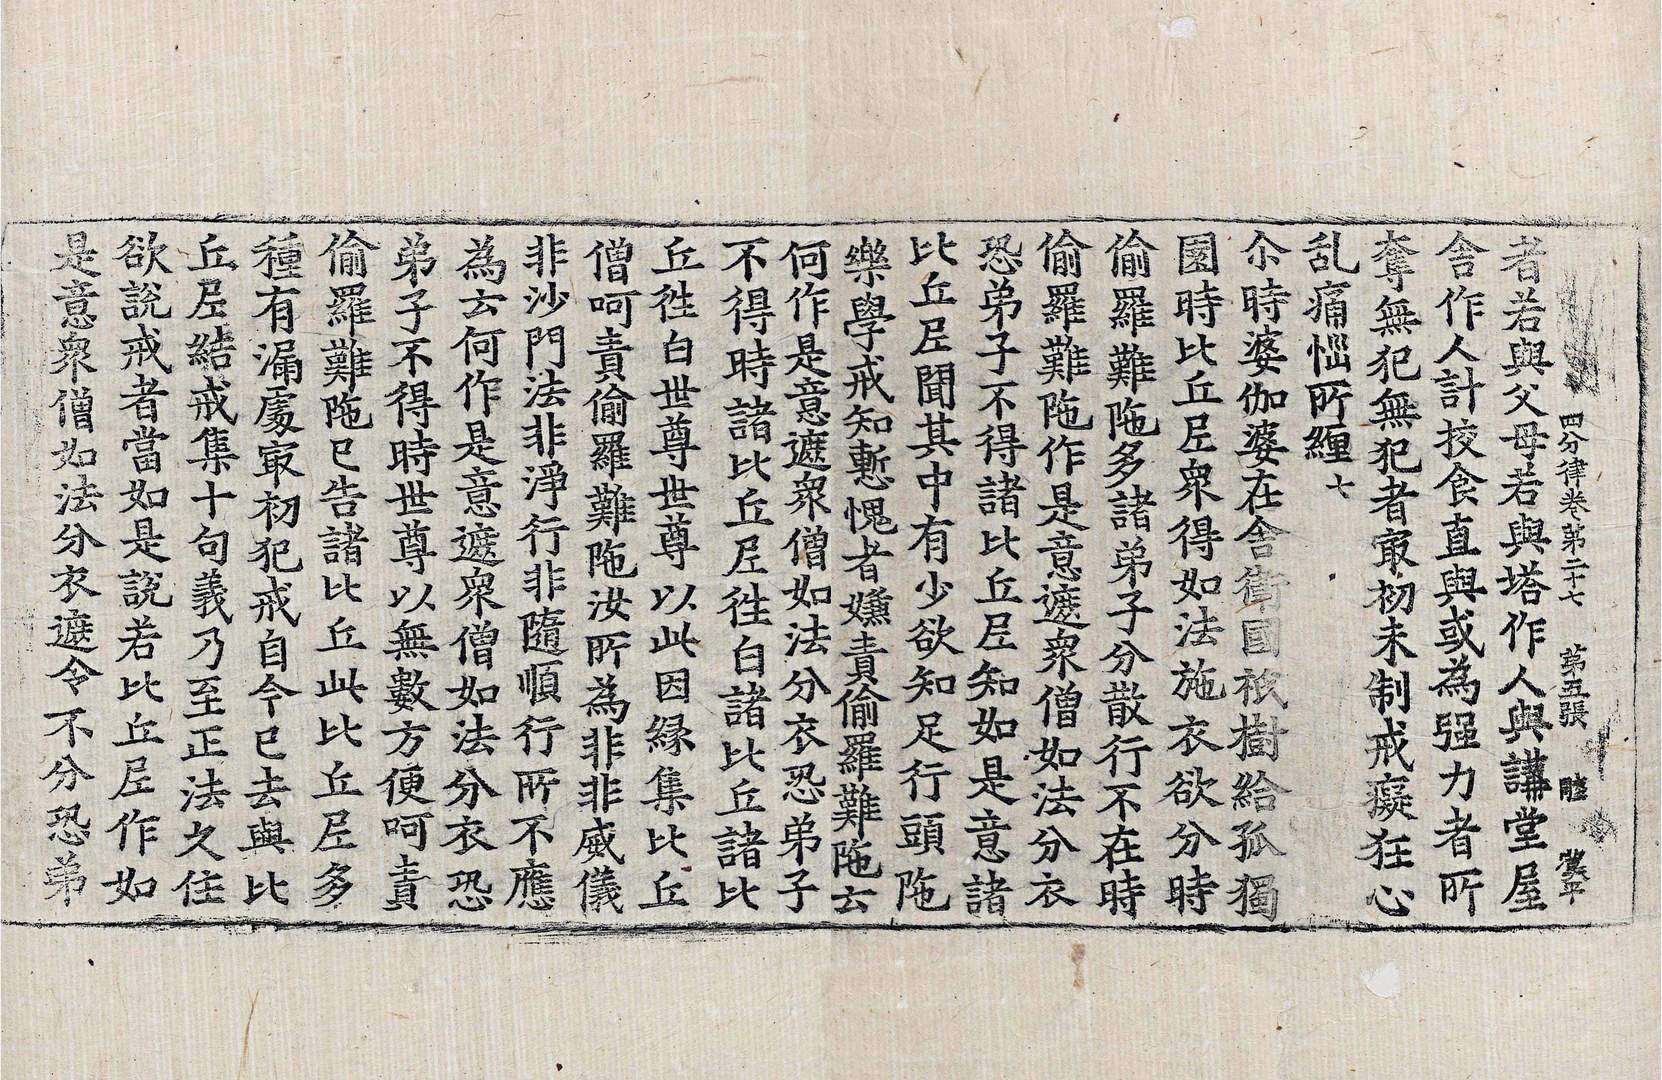 四分律卷第二十七 第五張 睦
者若與父母若與塔作人與講堂屋
舍作人計挍食直與或為强力者所
奪無犯無犯者㝡初未制戒癡狂心
乱痛惱所纏七
尒時婆伽婆在舍衛國祇樹給孤獨
園時比丘尼衆得如法施衣欲分時
偷羅難陁多諸弟子分散行不在時
偷羅難陁作是意遮衆僧如法分衣
恐弟子不得諸比丘尼知如是意諸
比丘尼聞其中有少欲知足行頭陁
樂學戒知慙愧者嫌責偷羅難陁云
何作是意遮衆僧如法分衣恐弟子
不得時諸比丘尼徃白諸比丘諸比
丘徃白世尊世尊以此因緣集比丘
僧呵責偷羅難陁汝所為非非威儀
非沙門法非淨行非隨順行所不應
為云何作是意遮衆僧如法分衣恐
弟子不得時世尊以無數方便呵責
偷羅難陁已告諸比丘此比丘尼多
種有漏處㝡初犯戒自今已去與比
丘尼結戒集十句義乃至正法久住
欲說戒者當如是說若比丘尼作如
是意衆僧如法分衣遮令不分恐弟